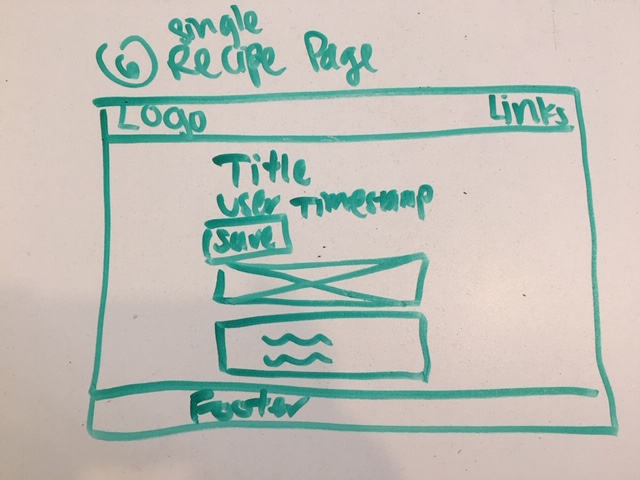 single
6 Recipe Page
Logo Links
Title
user Timestamp
Save
Footer